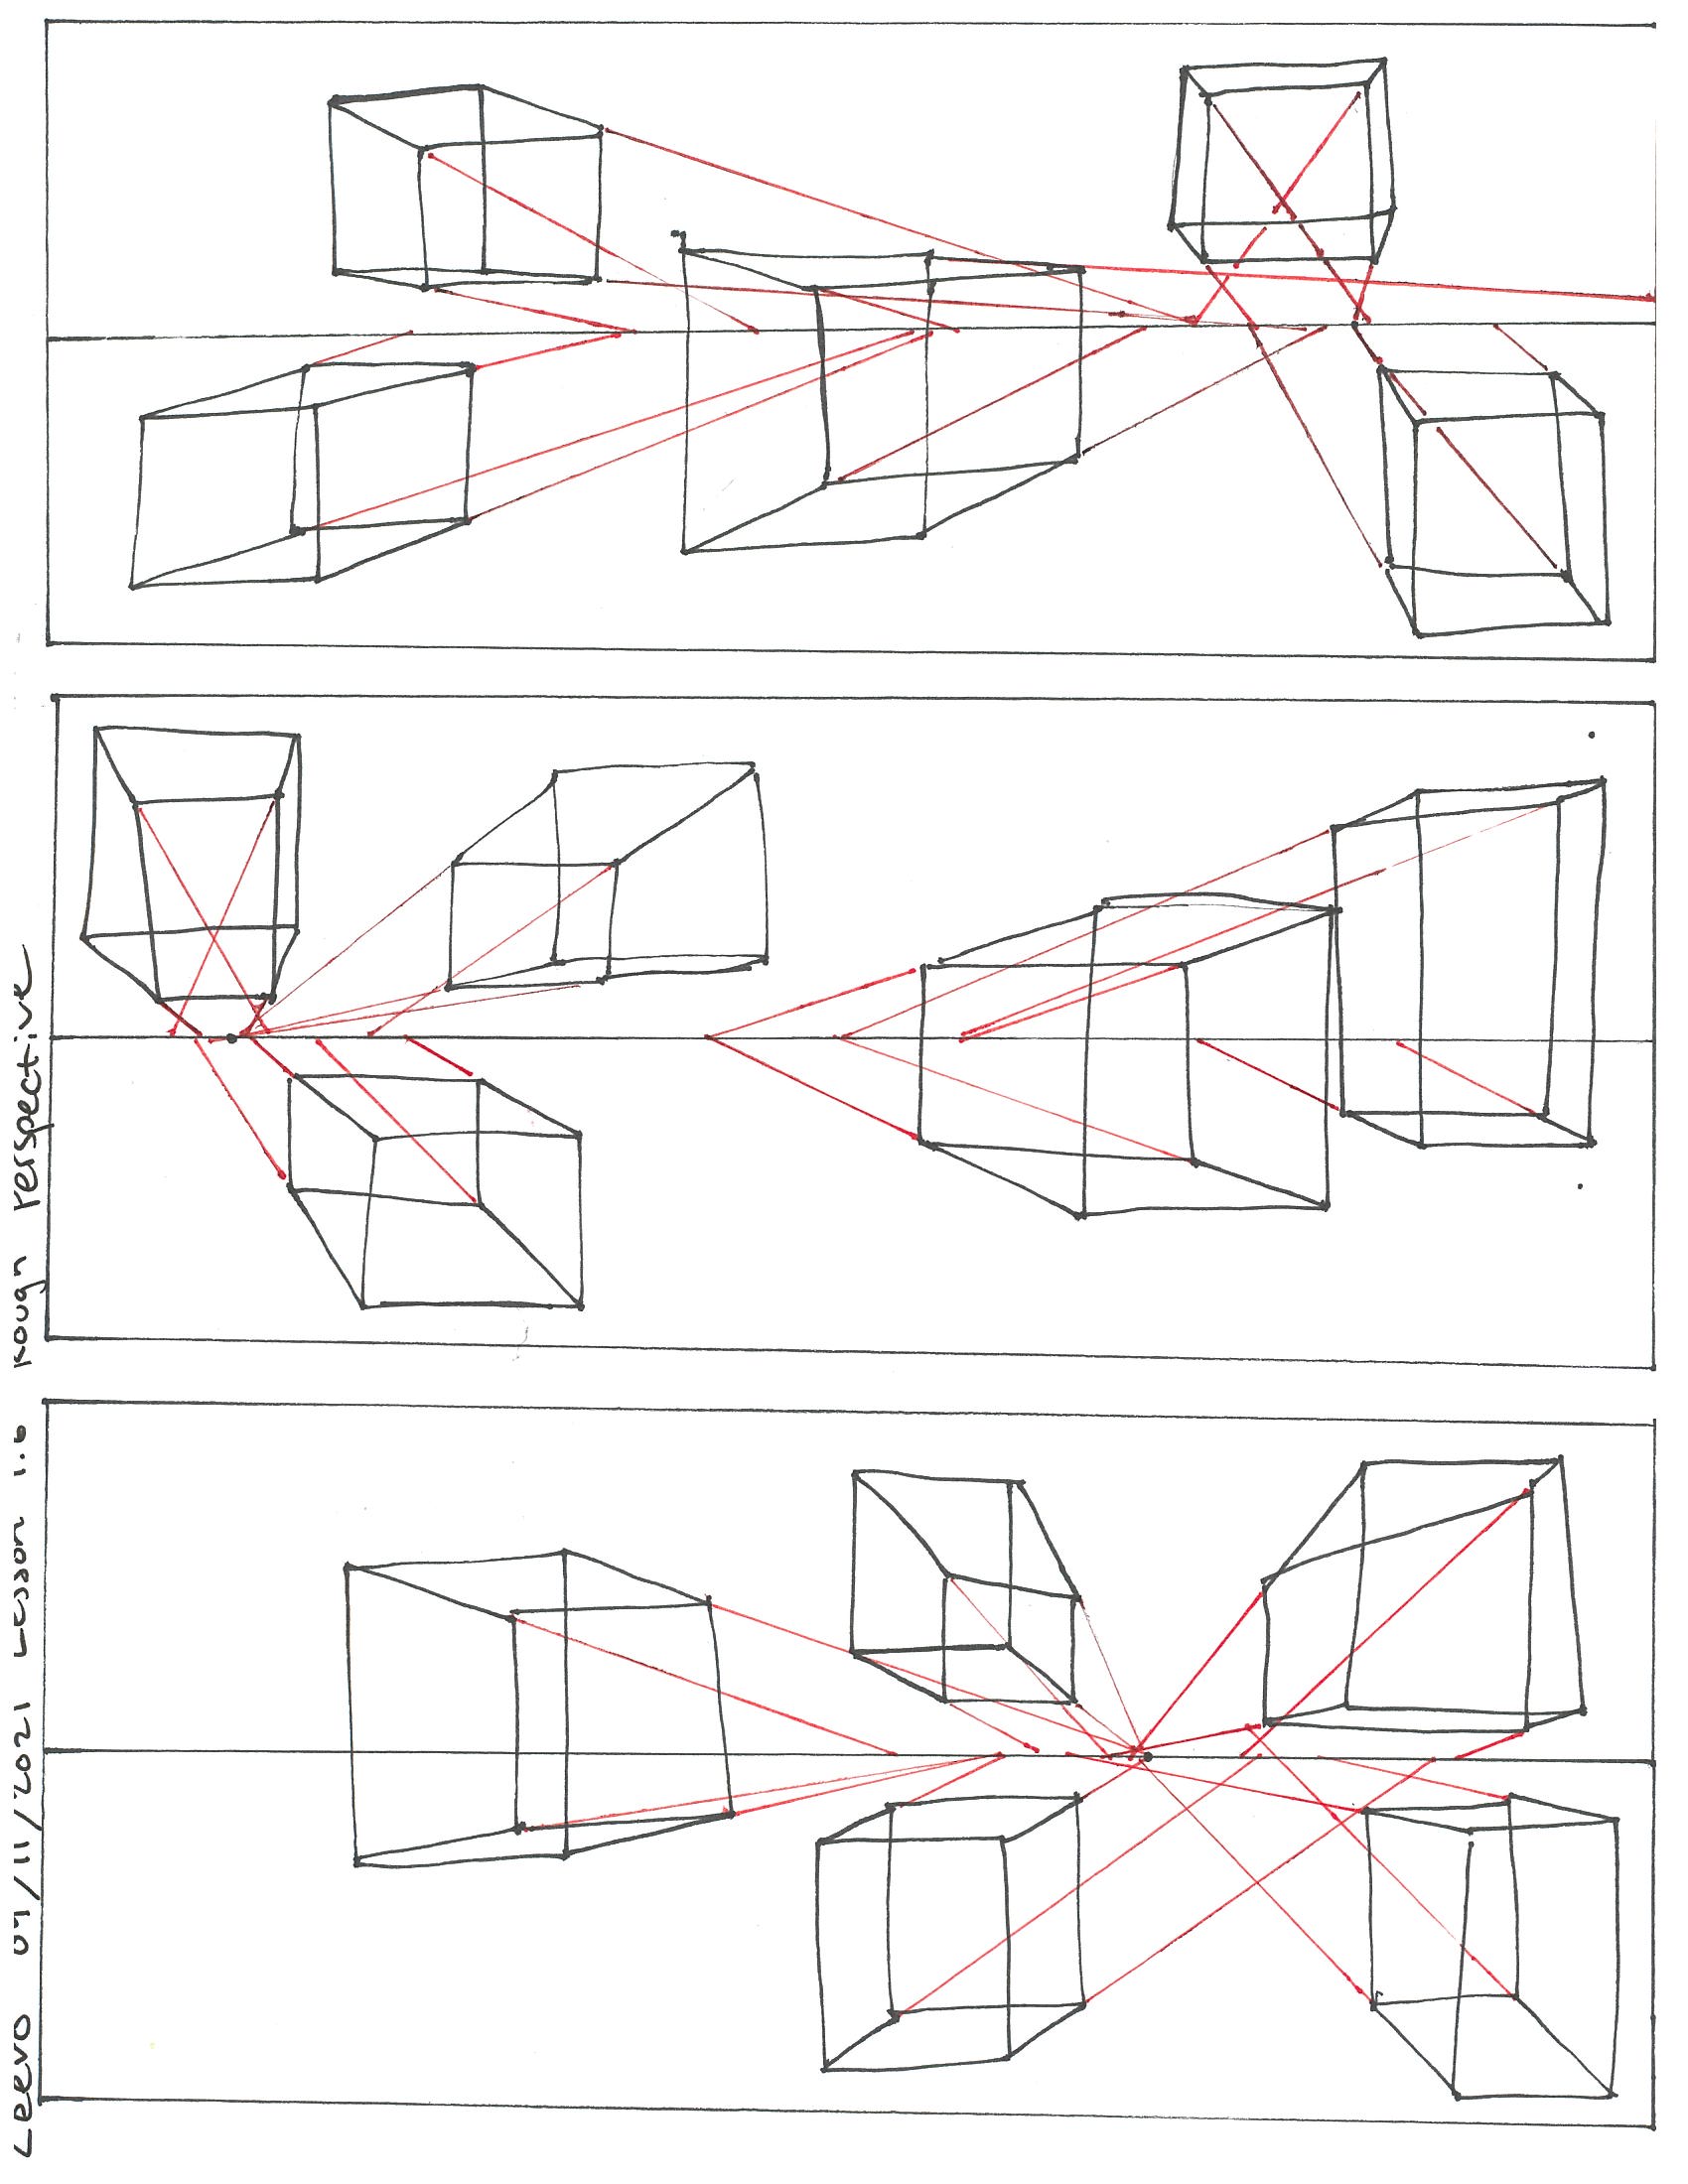 Leevo 09/11/2021 Lesson 1.6 Rough Perspective